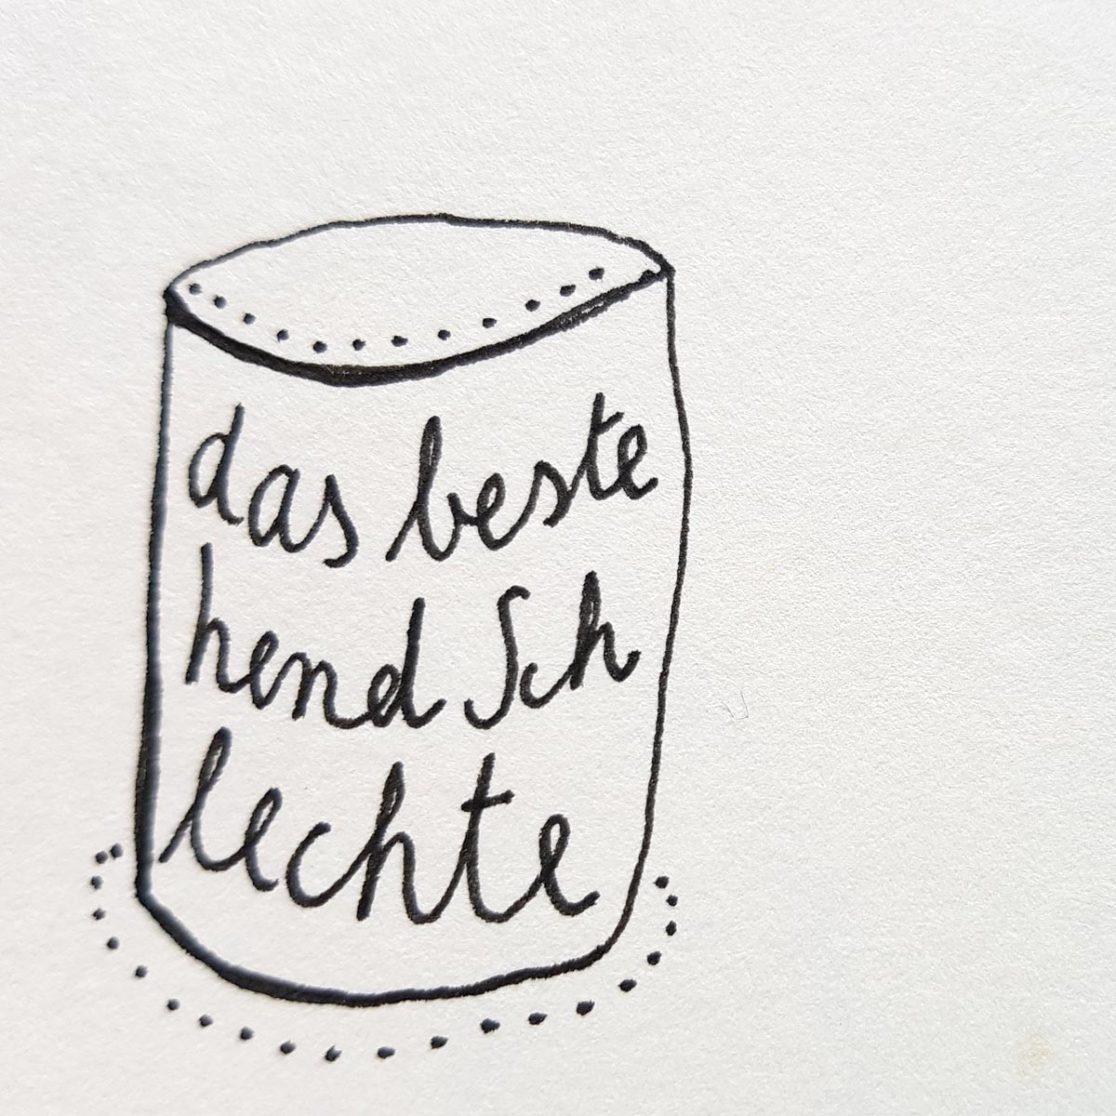 das beste
hend Sch
lechte